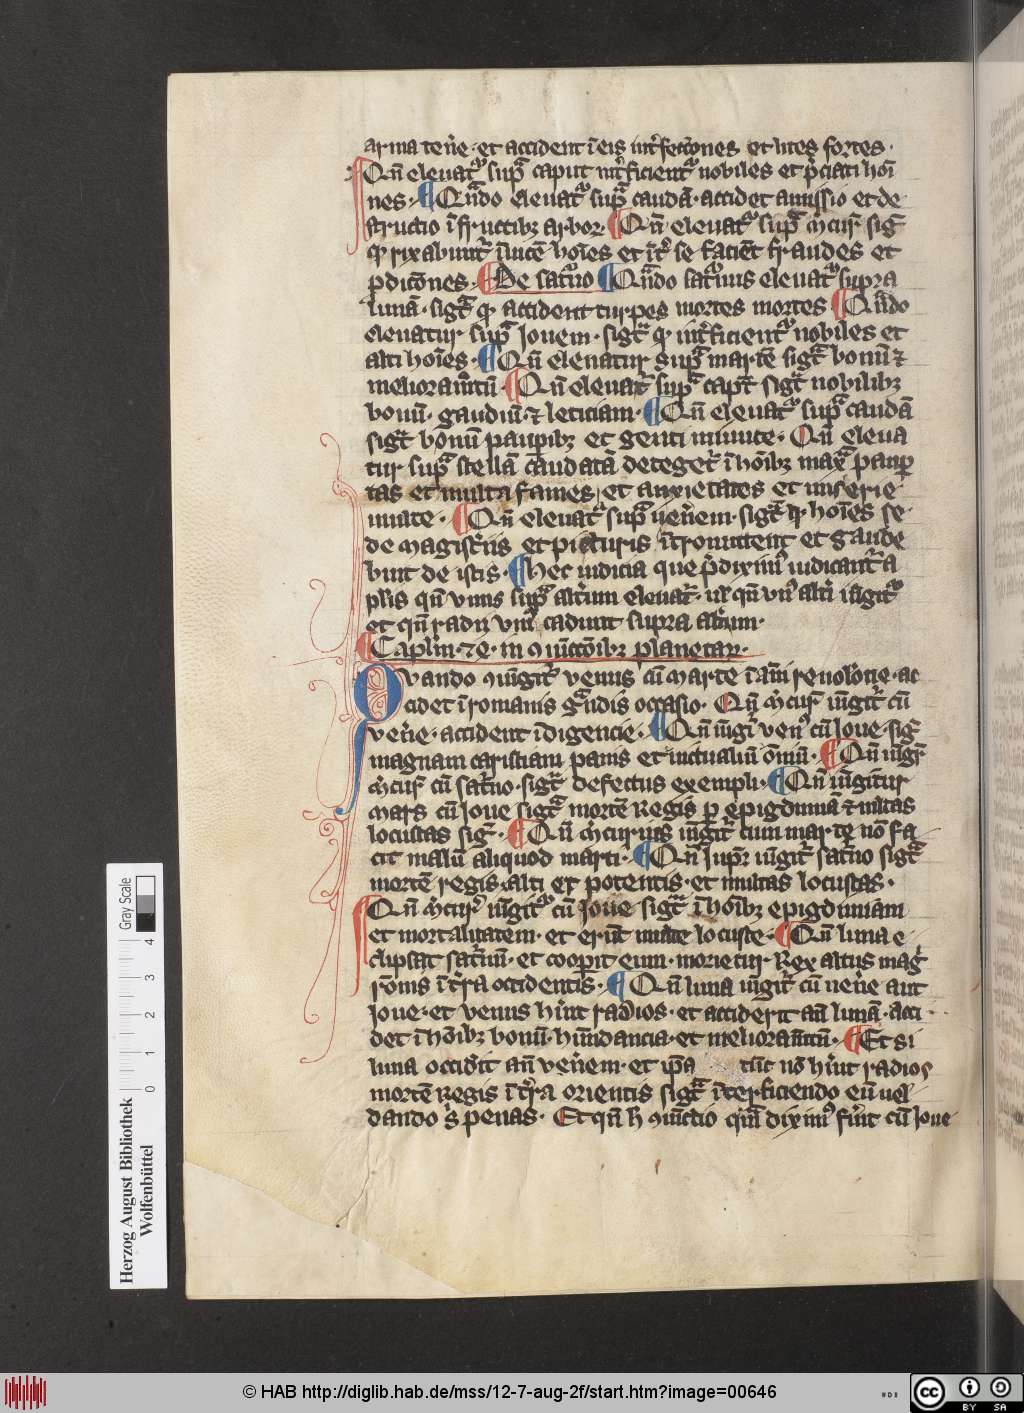 arma ten̄e · et accident ī eis int̄fect̄ones et lites fortes ·
Qn̄ eleuat᷑ sup̄ caput int̄ficient᷑ nobiles et p̄ciati hoı̄
nes · ¶ Qn̄do eleuat᷑ sup̄ caudā · accidet amissio et de
structio ī fructibꝫ arboꝝ ¶ Qn̄ eleuat᷑ sup̄ m̄cur̄ sigᷓ
ꝙ rixabunt᷑ īuicē hoı̄es et īt̄ se faciēt fraudes et
ꝓdic̄ones · ¶ De sat᷑no ¶ Qn̄do sat᷑nus eleuat᷑ supra
lunā · sigtᷓ ꝙ accident turpes mortes mortes ¶ Qn̄do
eleuatur sup̄ Jouem · sigtᷓ ꝙ int̄ficient᷑ nobiles et
alti hoı̄es · ¶ Qn̄ eleuatur sup̄ martē sigtᷓ bonū ⁊
melioram̄tū · ¶ Qn̄ eleuat᷑ sup̄ capt̄ sigtᷓ nobilibꝫ
bonū · gaudiū · ⁊ leticiam · ¶ Qn̄ eleuat᷑ sup̄ caudā
sigtᷓ bonū paupibꝫ et genti minute · Qn̄ eleua
tur sup̄ stellā caudatā deteget᷑ ī hōıbꝫ maxᷓ pauꝑ
tas et multa fames · et anxietates et miserie
multe · ¶ Qn̄ eleuat᷑ sup̄ uen̄em · sigtᷓ ꝙ hoı̄es se
de magist̄iis et picturis īt̄romittent et gaude
bunt de istis · ¶ hec iudicia que p̄diximꝰ iudicant᷑ a
plis qn̄ vnus sup̄ alt̄ium eleuat᷑ · ul̄ qn̄ vnꝰ alt̄i iūgit᷑
et qn̄ radii vniꝰ cadunt supra alt̄um ·
¶ Caplm · 7 e · in ꝯiūctōıbꝫ planetaꝝ ·
Qvando ꝯiūgit᷑ venus cū marte ī aı̄ı reuolōne · ac
cidet ī romanis gᷓndis occasio · Qn̄ m̄cur̄ iūgit᷑ cū
ven̄e · accident īdigencie · ¶ Qn̄ iūgı᷑ venꝰ cū Joue · sigᷓ
magnam caristiam panis et uictualiū ōmū · ¶ Qn̄ iūgı᷑
m̄cur̄ cū sat᷑no · sigtᷓ defectus exempli · ¶ Qn̄ iūgitur
mars cū Joue sigtᷓ mortē Regis ꝑ epigdimiā ⁊ multas
locustas sigᷓ · ¶ Qn̄ m̄curius iūgit᷑ cum marte nō fa
cit malū aliquod marti · ¶ Qn̄ Jupı̄t iūgit᷑ sat᷑no sigtᷓ
mortē regis · alti et potentis · et multas locustas ·
Qn̄ m̄cur̄ iūgit᷑ cū Joue sigtᷓ ī hōıbꝫ epigdimiam
et mortalitatem · et erūt multe locuste · ¶ Qn̄ luna e
clipsat sat᷑nū · et cooꝑit eum · morietur Rex altus mag᷑
rōnis ī t̄ra occidentis · ¶ Qn̄ luna iūgit᷑ cū ven̄e aut
Joue · et venus h̄int radios · et acciderit an̄ lunā · acci
det ī hōıbꝫ bonū · hūndancia · et melioram̄tū · ¶ Et si
luna occid̄it an̄ ven̄em · et ip̄a tūc nō h̄int radios
mortē Regis ī t̄ra orientis sigtᷓ īterficiendo eū uel
dando s̄ penas · Et qn̄ h ꝯiūctio qm̄ diximꝰ fūit cū Joue
Herzog August Bibliothek
Wolfenbüttel
Gray Scale
0 1 2 3 4
© HAB http://diglib.hab.de/mss/12-7-aug-2f/start.htm?image=00646
cc BY SA